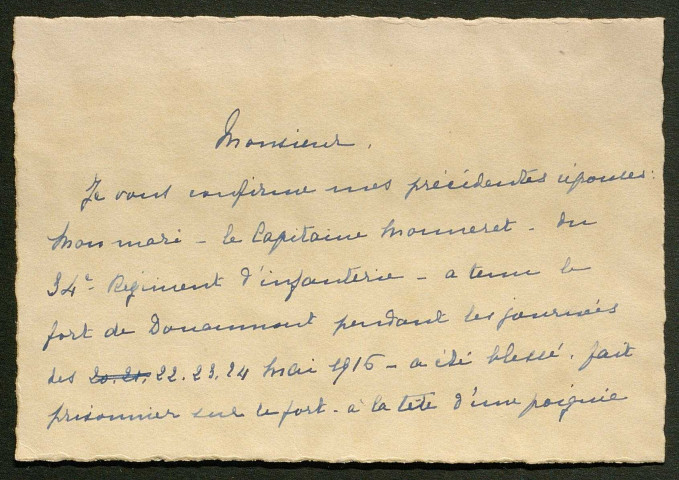 Monsieur,
Je vous confirme mes précédentes réponses :
Mon mari - le Capitaine Monneret - du
34e Régiment d'infanterie - a tenu le
fort de Douaumont pendant les journées
des 20. 21. 22. 23. 24 Mai 1916 - a été blessé. fait
prisonnier sur le fort - à la tête d'une poignée